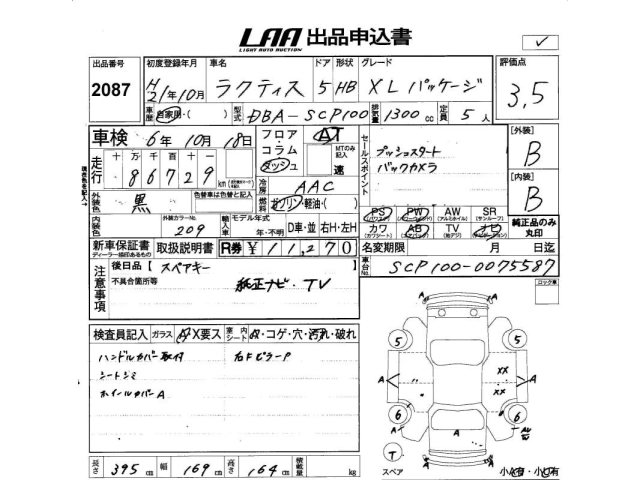 LAA 出品申込書
LIGHT AUTO AUCTION
出品番号 初度登録年月 車名 ドア 形状 グレード 評価点
2087 H21年10月 ラクティス 5 HB XLパッケージ 3.5
車歴 自家用・( ) 型式 DBA-SCP100 排気量 1300cc 定員 5人
車検 6年10月18日 フロア・コラム ダッシュ AT MTのみ記入 速 セールスポイント
プッシュスタート
バックカメラ
[外装] B
[内装] B
走行 十 万 千 百 十
86729 km
冷房 AAC
燃料 ガソリン・軽油・( )
外装色 黒 色替車は色替と記入
外装カラーNo. 209 輸入車 モデル年式 年・不明 D車・並 右H・左H
PS (パワステ) PW AW (アルミホイル) SR (サンルーフ)
カワ (カワシート) AB TV (地デジ) ナビ
純正品のみ丸印
新車保証書 取扱説明書 R券 ¥11,270 名変期限 月 日迄
ディーラー印あるもの
車台No. SCP100-0075587
注意事項 後日品 [スペアキー ]
不具合箇所等
純正ナビ・TV
ロック車
検査員記入 ガラス A・X要ス 室内シート A・コゲ・穴・汚れ・破れ
ハンドルカバー取付 右FピラーP
シートシミ
ホイールカバーA
A A
5 5
A XX A
XX
6 6
A
A A
T
スペア
長さ 395cm 幅 169cm 高さ 164cm 積載量 kg